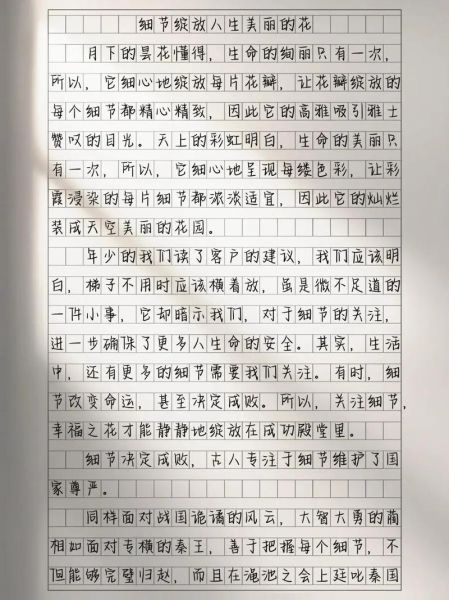 细节绽放人生美丽的花
月下的昙花懂得，生命的绚丽只有一次，
所以，它细心地绽放每片花瓣，让花瓣绽放的
每个细节都精心精致，因此它的高雅吸引雅士
赞叹的目光。天上的彩虹明白，生命的美丽只
有一次，所以，它细心地呈现每缕色彩，让彩
霞浸染的每片细节都浓淡适宜，因此它的灿烂
装成天空美丽的花园。
年少的我们读了客户的建议，我们应该明
白，梯子不用时应该横着放，虽是微不足道的
一件小事，它却暗示我们，对于细节的关注，
进一步确保了更多人生命的安全。其实，生活
中，还有更多的细节需要我们关注。有时，细
节改变命运，甚至决定成败。所以，关注细节，
幸福之花才能静静地绽放在成功殿堂里。
细节决定成败，古人专注于细节维护了国
家尊严。
同样面对战国诡谲的风云，大智大勇的蔺
相如面对专横的秦王，善于把握每个细节，不
但能够完璧归赵，而且在渑池之会上廷叱秦国